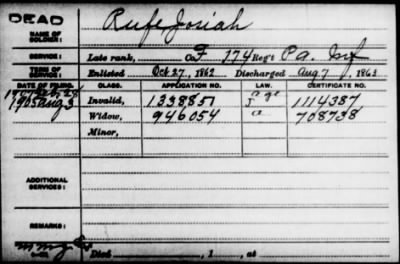 DEAD
NAME OF SOLDIER: Rufe Josiah
SERVICE: Late rank, Co. F 174 Reg't Pa. Inf
TERM OF SERVICE: Enlisted Oct 27, 1862 Discharged Aug 7, 1863
DATE OF FILING. CLASS. APPLICATION NO. LAW. CERTIFICATE NO.
Invalid, 1338851 age 1114387
1905 Aug 3 Widow, 946054 a 708738
Minor,
ADDITIONAL SERVICES:
REMARKS:
Died , 1 , at